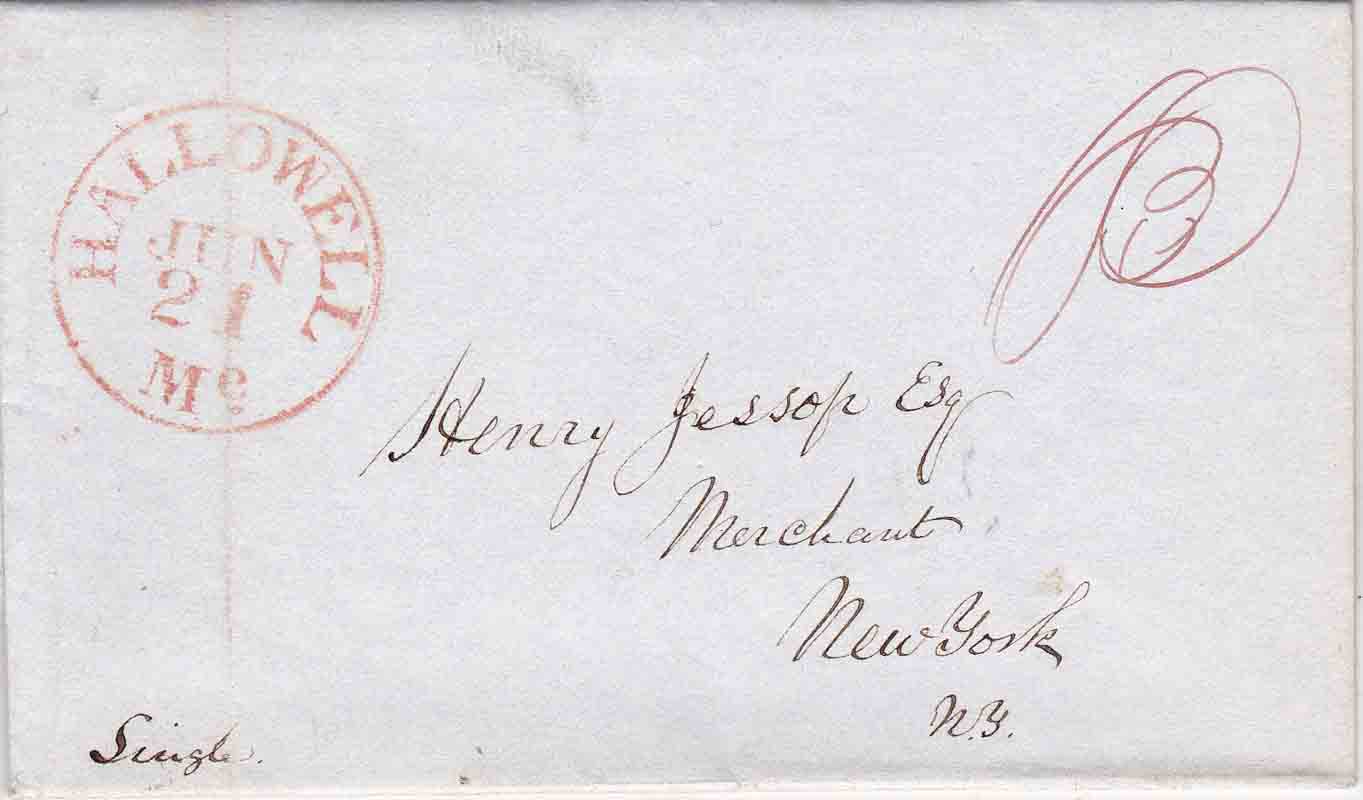 HALLOWELL
JUN
21
Me
Henry Jessop Esq
Merchant
New York
N.Y.
Single.